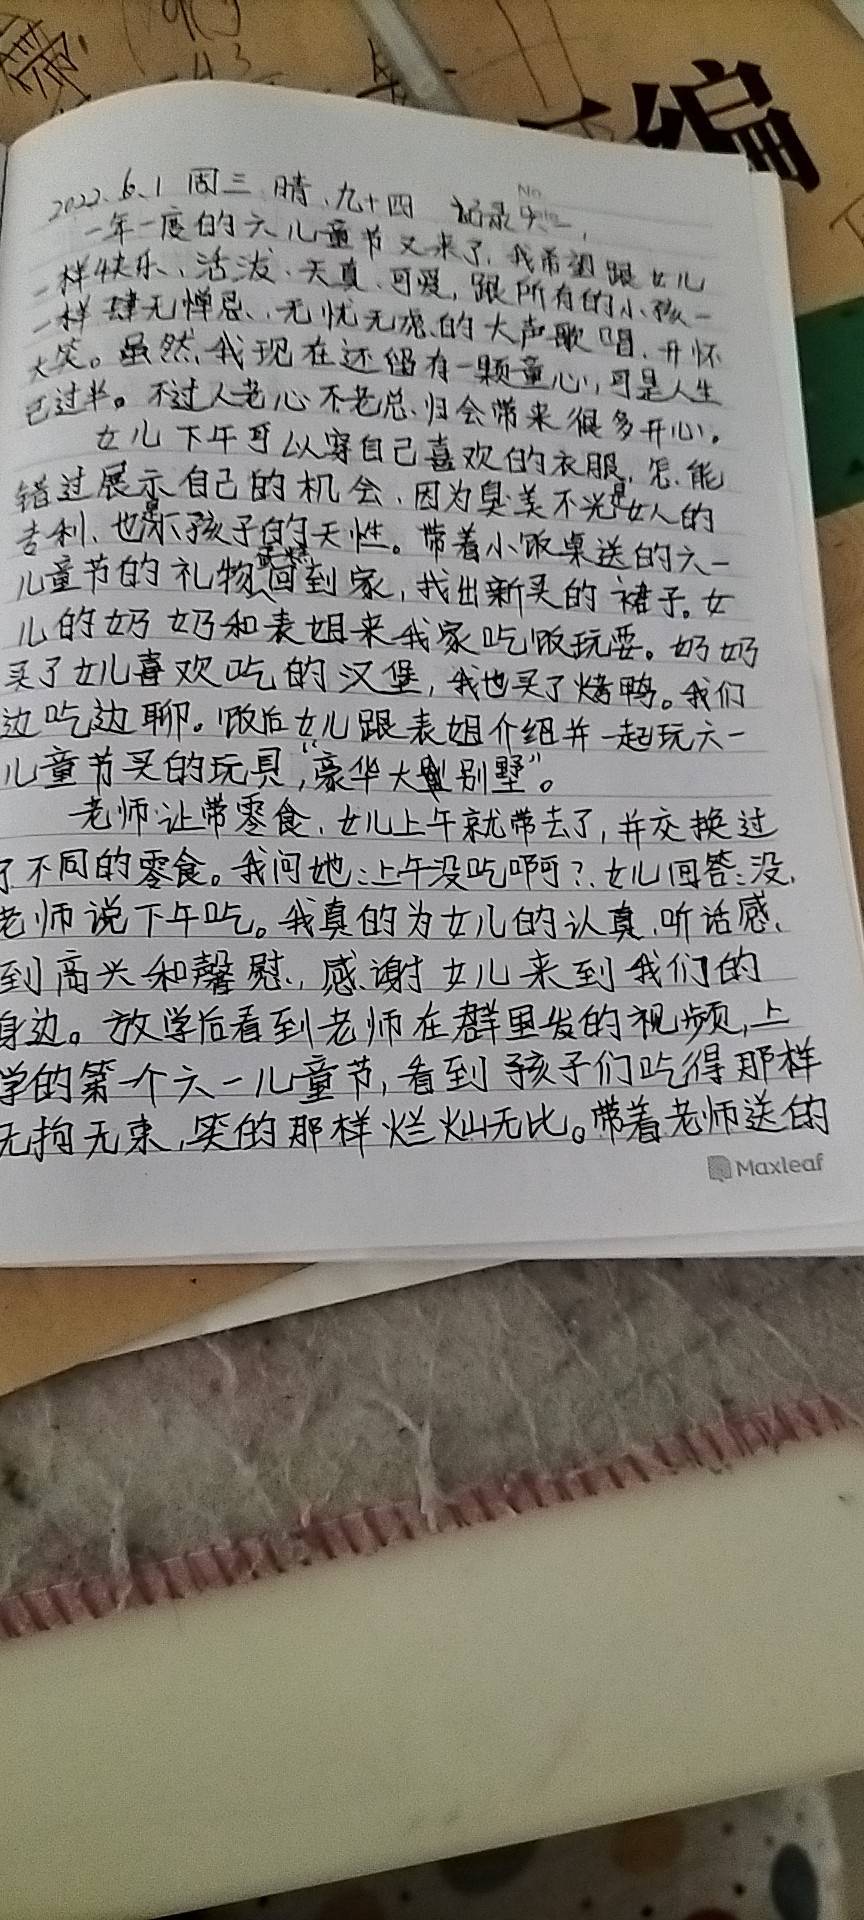 编
No
2022.6.1 周三 晴、九十四 记录
一年一度的六儿童节又来了,我希望跟女儿
一样快乐、活泼、天真、可爱,跟所有的小孩一
一样肆无惮忌、无忧无虑的大声歌唱、开怀
大笑。虽然我现在还留有一颗童心,可是人生
已过半。不过人老心不老总归会带来很多开心。
女儿下午可以穿自己喜欢的衣服,怎能
错过展示自己的机会、因为臭美不光是女人的
专利、也是孩子的天性。带着小饭桌送的六一
儿童节的礼物回到家,找出新买的裙子。女
儿的奶奶和表姐来我家吃饭玩耍。奶奶
买了女儿喜欢吃的汉堡,我也买了烤鸭。我们
边吃边聊。饭后女儿跟表姐介绍并一起玩六一
儿童节买的玩具,“豪华大别墅”。
老师让带零食、女儿上午就带去了,并交换过
了不同的零食。我问她:上午没吃啊?女儿回答:没,
老师说下午吃。我真的为女儿的认真、听话感
到高兴和馨慰、感谢女儿来到我们的
身边。放学后看到老师在群里发的视频,上
学的第一个六一儿童节,看到孩子们吃得那样
无拘无束,笑的那样烂灿无比。带着老师送的
Maxleaf